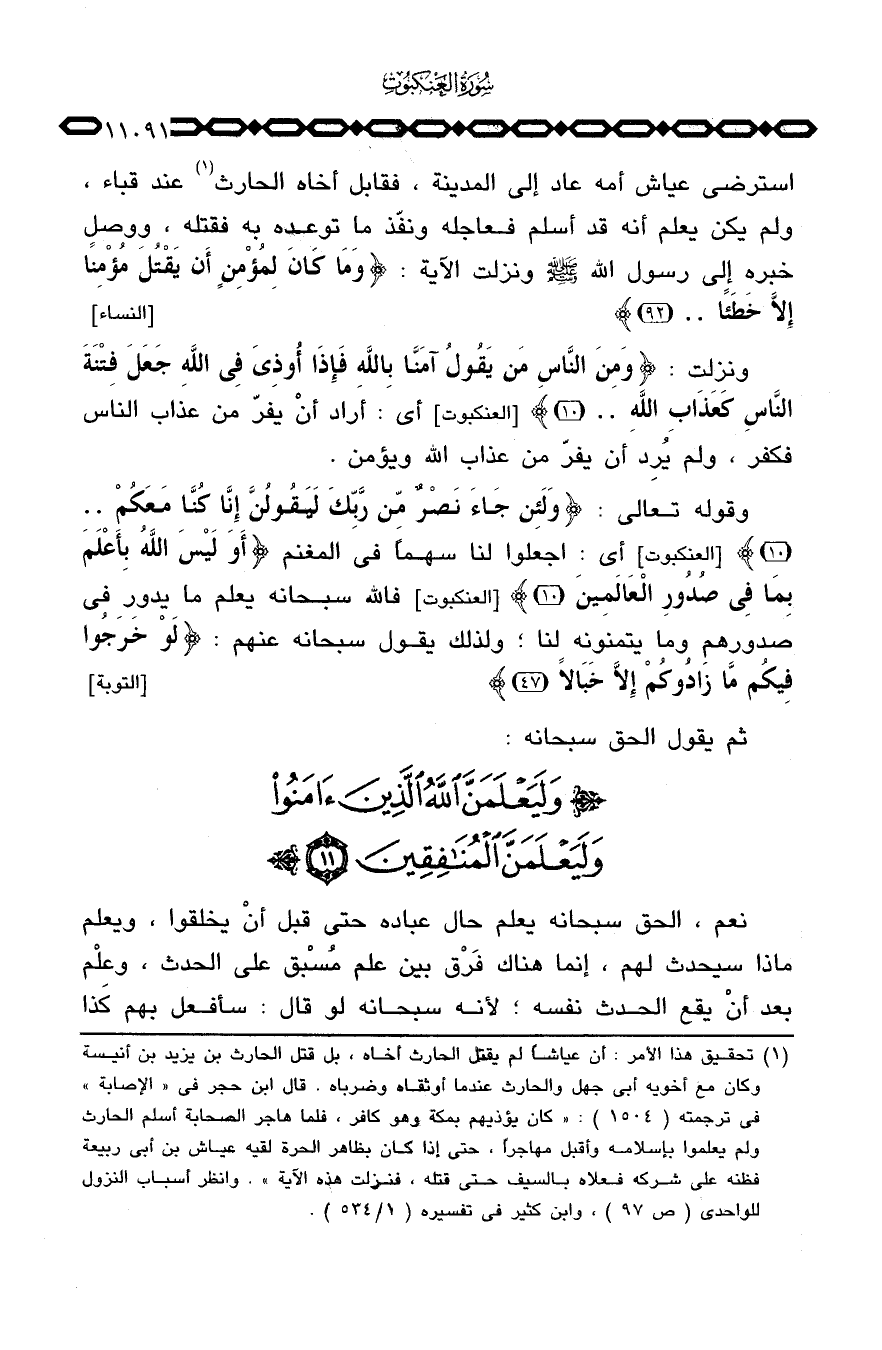 سُورَةُ العَنكَبُوتِ
١١٠٩١
استرضى عياش أمه عاد إلى المدينة ، فقابل أخاه الحارث(١) عند قباء ،
ولم يكن يعلم أنه قد أسلم فعاجله ونفّذ ما توعده به فقتله ، ووصل
خبره إلى رسول الله ﷺ ونزلت الآية : ﴿ وَمَا كَانَ لِمُؤْمِنٍ أَن يَقْتُلَ مُؤْمِنًا
إِلاَّ خَطَئًا .. (٩٢) ﴾ [النساء]
ونزلت : ﴿ وَمِنَ النَّاسِ مَن يَقُولُ آمَنَّا بِاللَّهِ فَإِذَا أُوذِىَ فِى اللَّهِ جَعَلَ فِتْنَةَ
النَّاسِ كَعَذَابِ اللَّهِ .. (١٠) ﴾ [العنكبوت] أى : أراد أنْ يفرّ من عذاب الناس
فكفر ، ولم يُرِد أن يفرّ من عذاب الله ويؤمن .
وقوله تعالى : ﴿ وَلَئِن جَاءَ نَصْرٌ مِّن رَّبِّكَ لَيَقُولُنَّ إِنَّا كُنَّا مَعَكُمْ ..
(١٠) ﴾ [العنكبوت] أى : اجعلوا لنا سهماً فى المغنم ﴿ أَوَ لَيْسَ اللَّهُ بِأَعْلَمَ
بِمَا فِى صُدُورِ الْعَالَمِينَ (١٠) ﴾ [العنكبوت] فالله سبحانه يعلم ما يدور فى
صدورهم وما يتمنونه لنا ؛ ولذلك يقول سبحانه عنهم : ﴿ لَوْ خَرَجُوا
فِيكُم مَّا زَادُوكُمْ إِلاَّ خَبَالاً (٤٧) ﴾ [التوبة]
ثم يقول الحق سبحانه :
﴿ وَلَيَعْلَمَنَّ ٱللَّهُ ٱلَّذِينَ ءَامَنُوا۟
وَلَيَعْلَمَنَّ ٱلْمُنَٰفِقِينَ ١١ ﴾
نعم ، الحق سبحانه يعلم حال عباده حتى قبل أنْ يخلقوا ، ويعلم
ماذا سيحدث لهم ، إنما هناك فَرْق بين علم مُسْبق على الحدث ، وعلْم
بعد أنْ يقع الحدث نفسه ؛ لأنه سبحانه لو قال : سأفعل بهم كَذا
(١) تحقيق هذا الأمر : أن عياشاً لم يقتل الحارث أخاه ، بل قتل الحارث بن يزيد بن أنيسة
وكان مع أخويه أبى جهل والحارث عندما أوثقاه وضرباه . قال ابن حجر فى « الإصابة »
فى ترجمته ( ١٥٠٤ ) : « كان يؤذيهم بمكة وهو كافر ، فلما هاجر الصحابة أسلم الحارث
ولم يعلموا بإسلامه وأقبل مهاجراً ، حتى إذا كان بظاهر الحرة لقيه عياش بن أبى ربيعة
فظنه على شركه فعلاه بالسيف حتى قتله ، فنزلت هذه الآية » . وانظر أسباب النزول
للواحدى ( ص ٩٧ ) ، وابن كثير فى تفسيره ( ٥٣٤/١ ) .